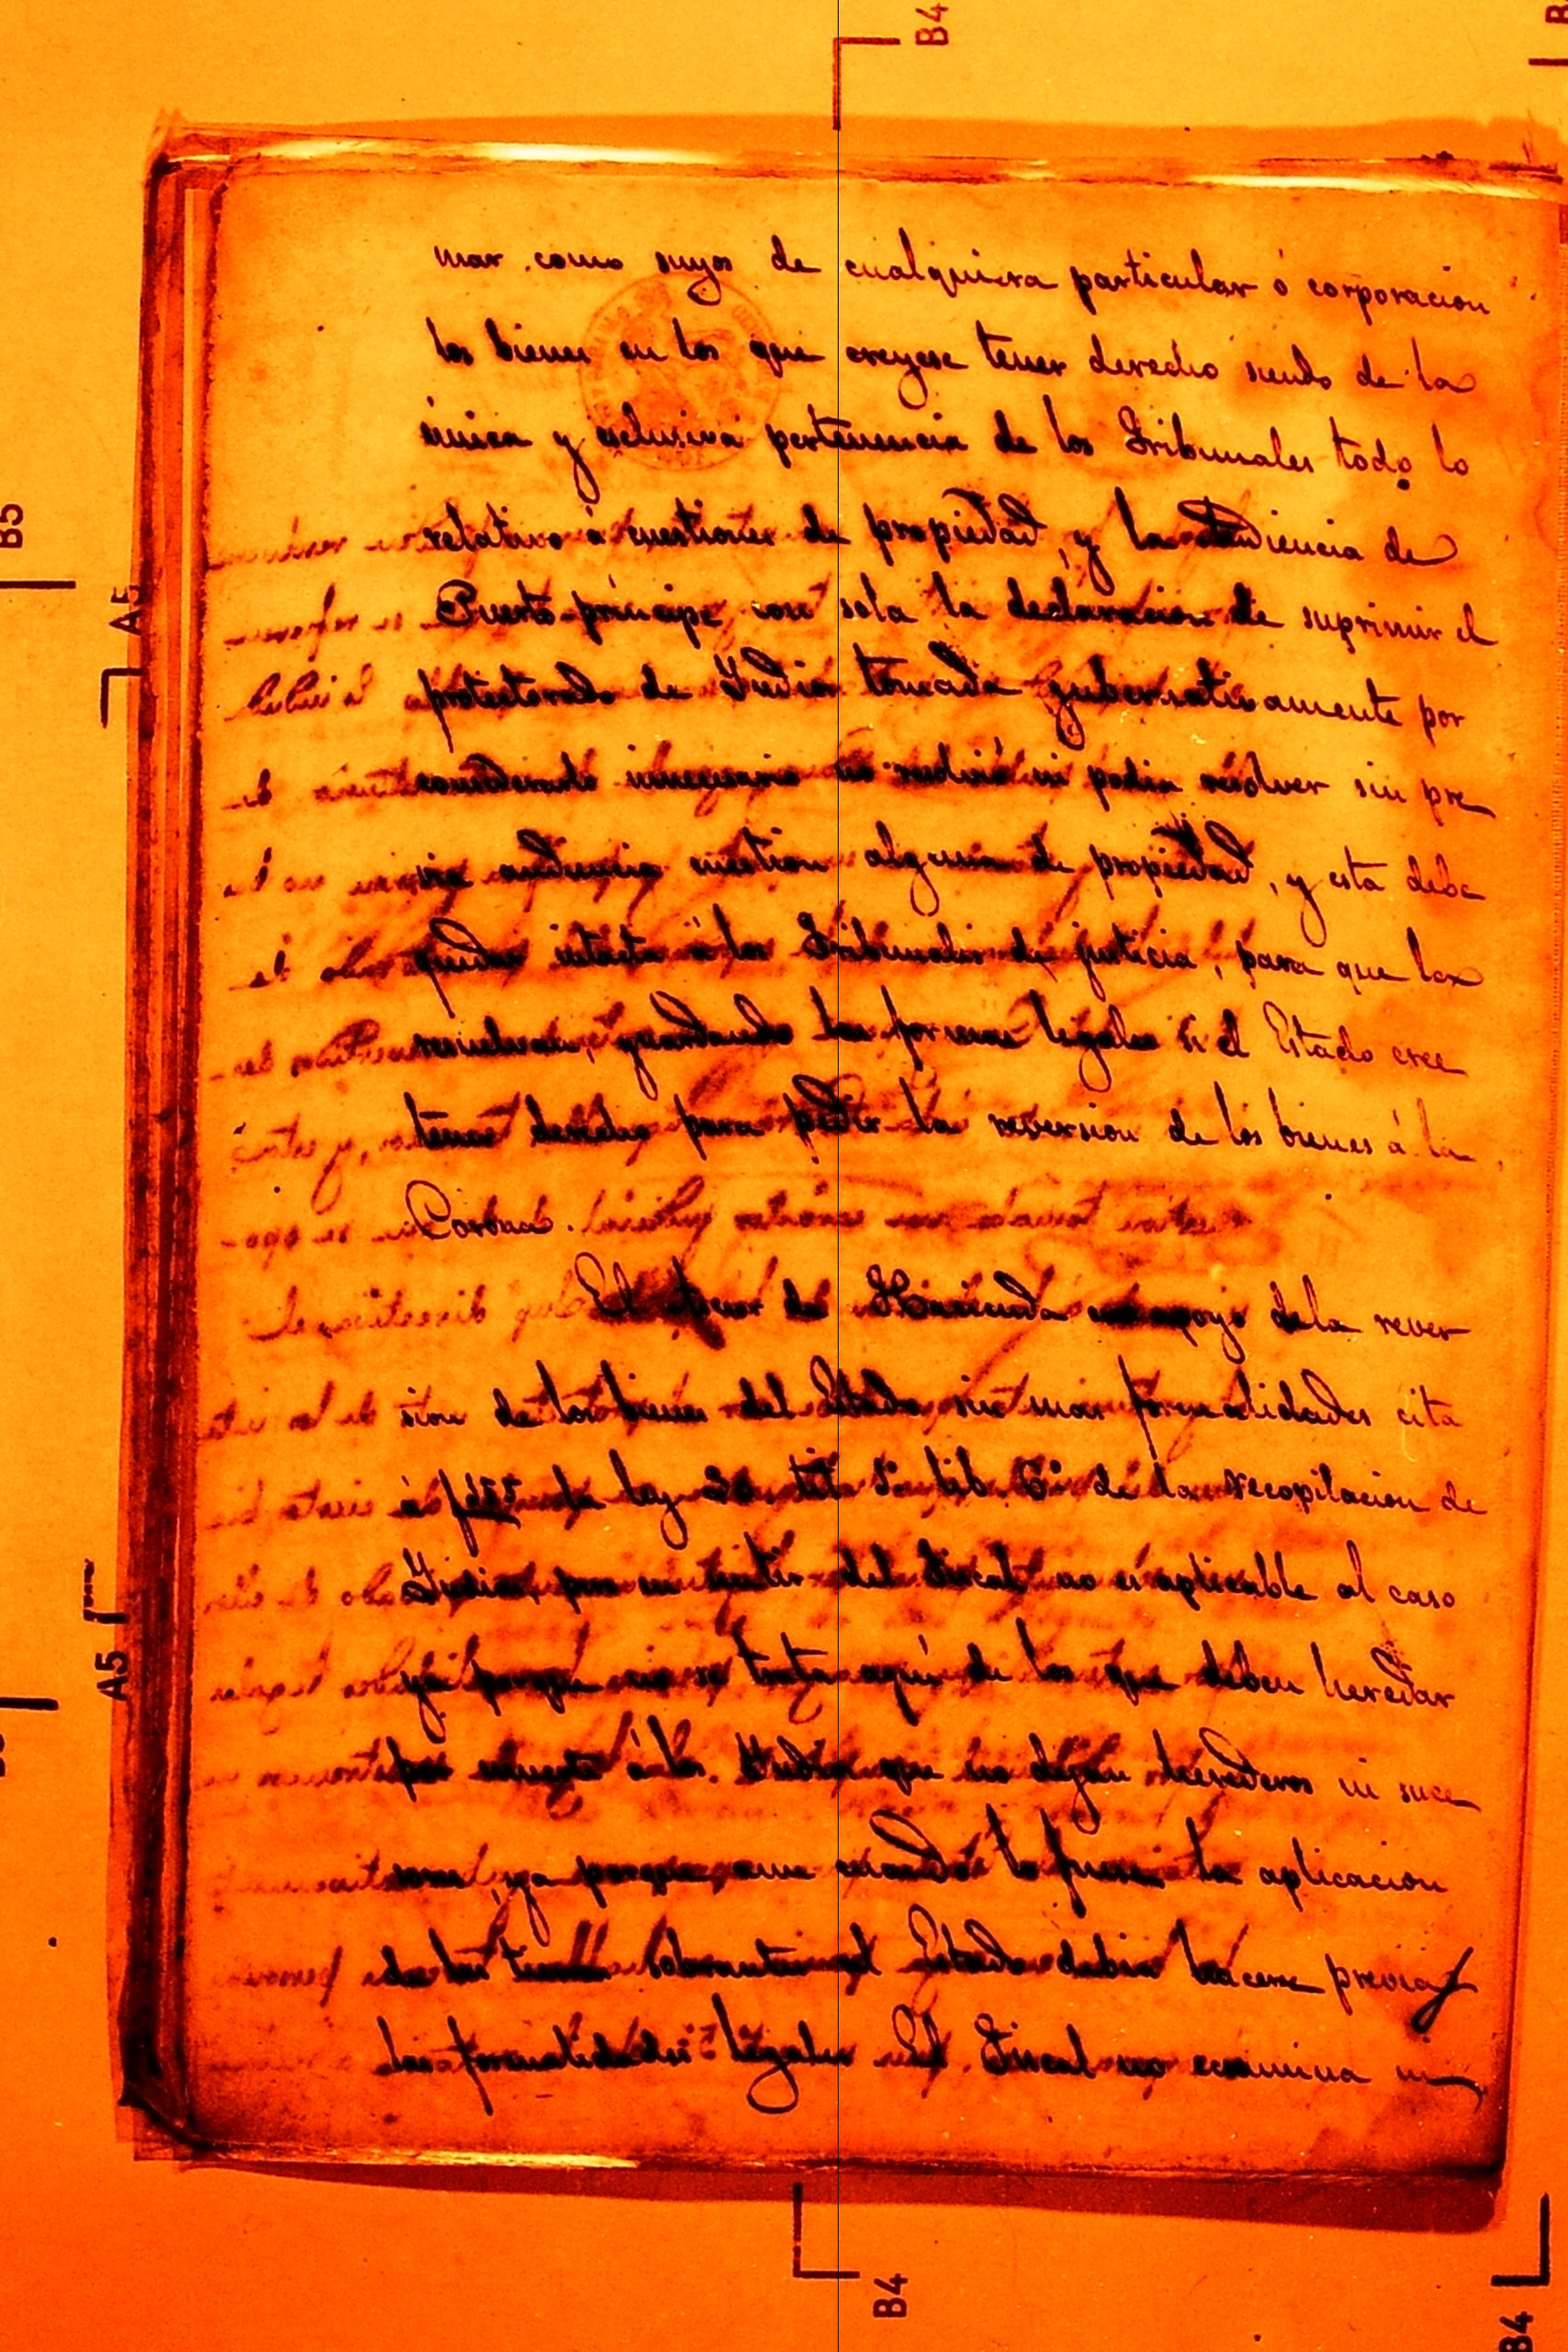 mar como suyos de cualquiera particular ó corporacion
los bienes en los que creyese tener derecho siendo de la
única y esclusiva pertenencia de los Tribunales todo lo
relativo á cuestiones de propiedad, y la Audiencia de
Puerto-príncipe con sola la declaracion de suprimir el
protectorado de Indios tomada gubernativamente por
considerarlo innecesario no resolvió ni podia resolver sin pre
via audiencia cuestion alguna de propiedad, y esta debe
quedar intacta á los Tribunales de justicia, para que los
resuelvan, guardando las formas legales si el Estado cree
tener derecho para pedir la reversion de los bienes á la
Corona.
El de Hacienda en apoyo de la rever
sion de los bienes del Estado sin mas formalidades cita
á f la ley 30 tit 1º lib. 6º de la recopilacion de
Indias, pero en sentir del Fiscal no es aplicable al caso
ya porque no se trata aquí de los que deben heredar
por muerte á los Indios que no dejan herederos ni suce
sores, ya porque aun cuando lo fuera la aplicacion
de las tierras sobrantes al Estado debia hacerse previas
las formalidades legales El Fiscal no ecsamina ni
B4
B5
A5
A5
B4
B4